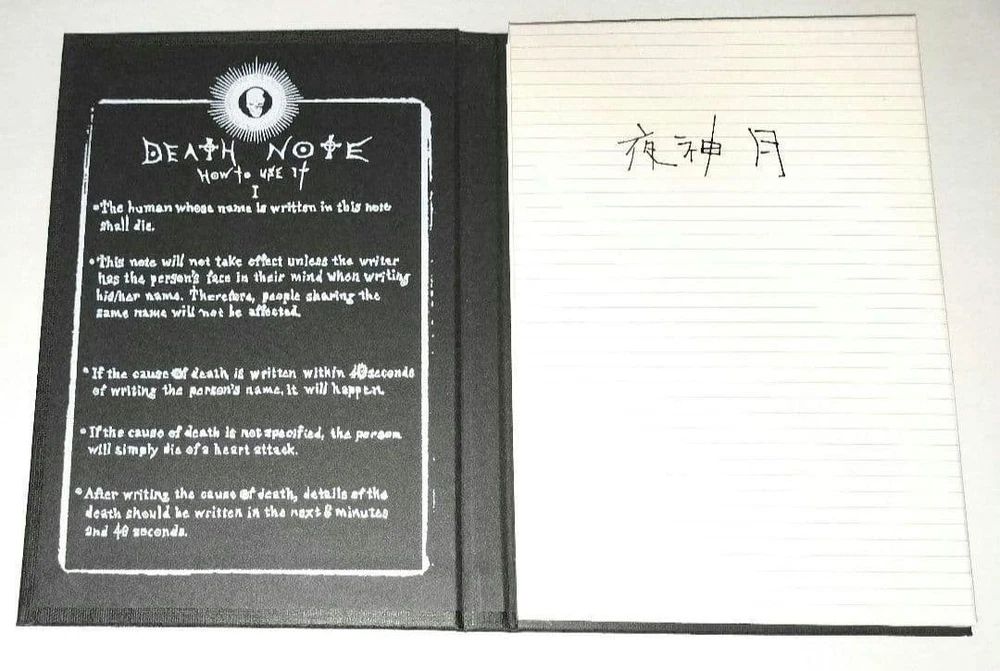 DEATH NOTE
HOW TO USE IT
I
•The human whose name is written in this note
shall die.
•This note will not take effect unless the writer
has the person's face in their mind when writing
his/her name. Therefore, people sharing the
same name will not be affected.
•If the cause of death is written within 40seconds
of writing the person's name, it will happen.
•If the cause of death is not specified, the person
will simply die of a heart attack.
•After writing the cause of death, details of the
death should be written in the next 6 minutes
and 40 seconds.
夜神 月